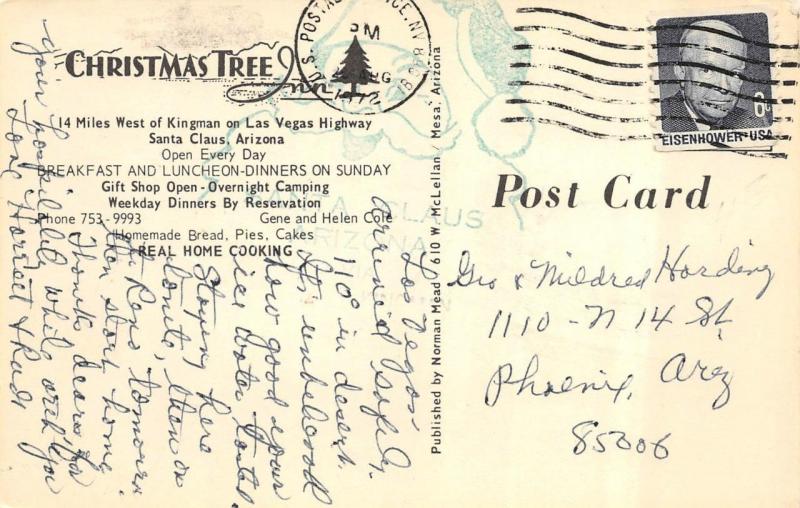 CHRISTMAS TREE Inn
14 Miles West of Kingman on Las Vegas Highway
Santa Claus, Arizona
Open Every Day
BREAKFAST AND LUNCHEON-DINNERS ON SUNDAY
Gift Shop Open - Overnight Camping
Weekday Dinners By Reservation
Phone 753-9993 Gene and Helen Cole
Homemade Bread, Pies, Cakes
REAL HOME COOKING
U.S. POSTAL SERVICE, NV
PM
AUG
1972
EISENHOWER·USA
8c
SANTA CLAUS
ARIZONA
Published by Norman Mead / 610 W McLellan / Mesa, Arizona
Post Card
Geo & Mildred Harding
1110 - N 14 St
Phoenix, Ariz
85006
Las Vegas
Arrived safely.
110° in desert.
It's
how good your
ice water tasted.
Staying here
tonite, then on
to Reno tomorrow
then start home.
Thanks dears for
your hospitality while with you
Love Harriet &